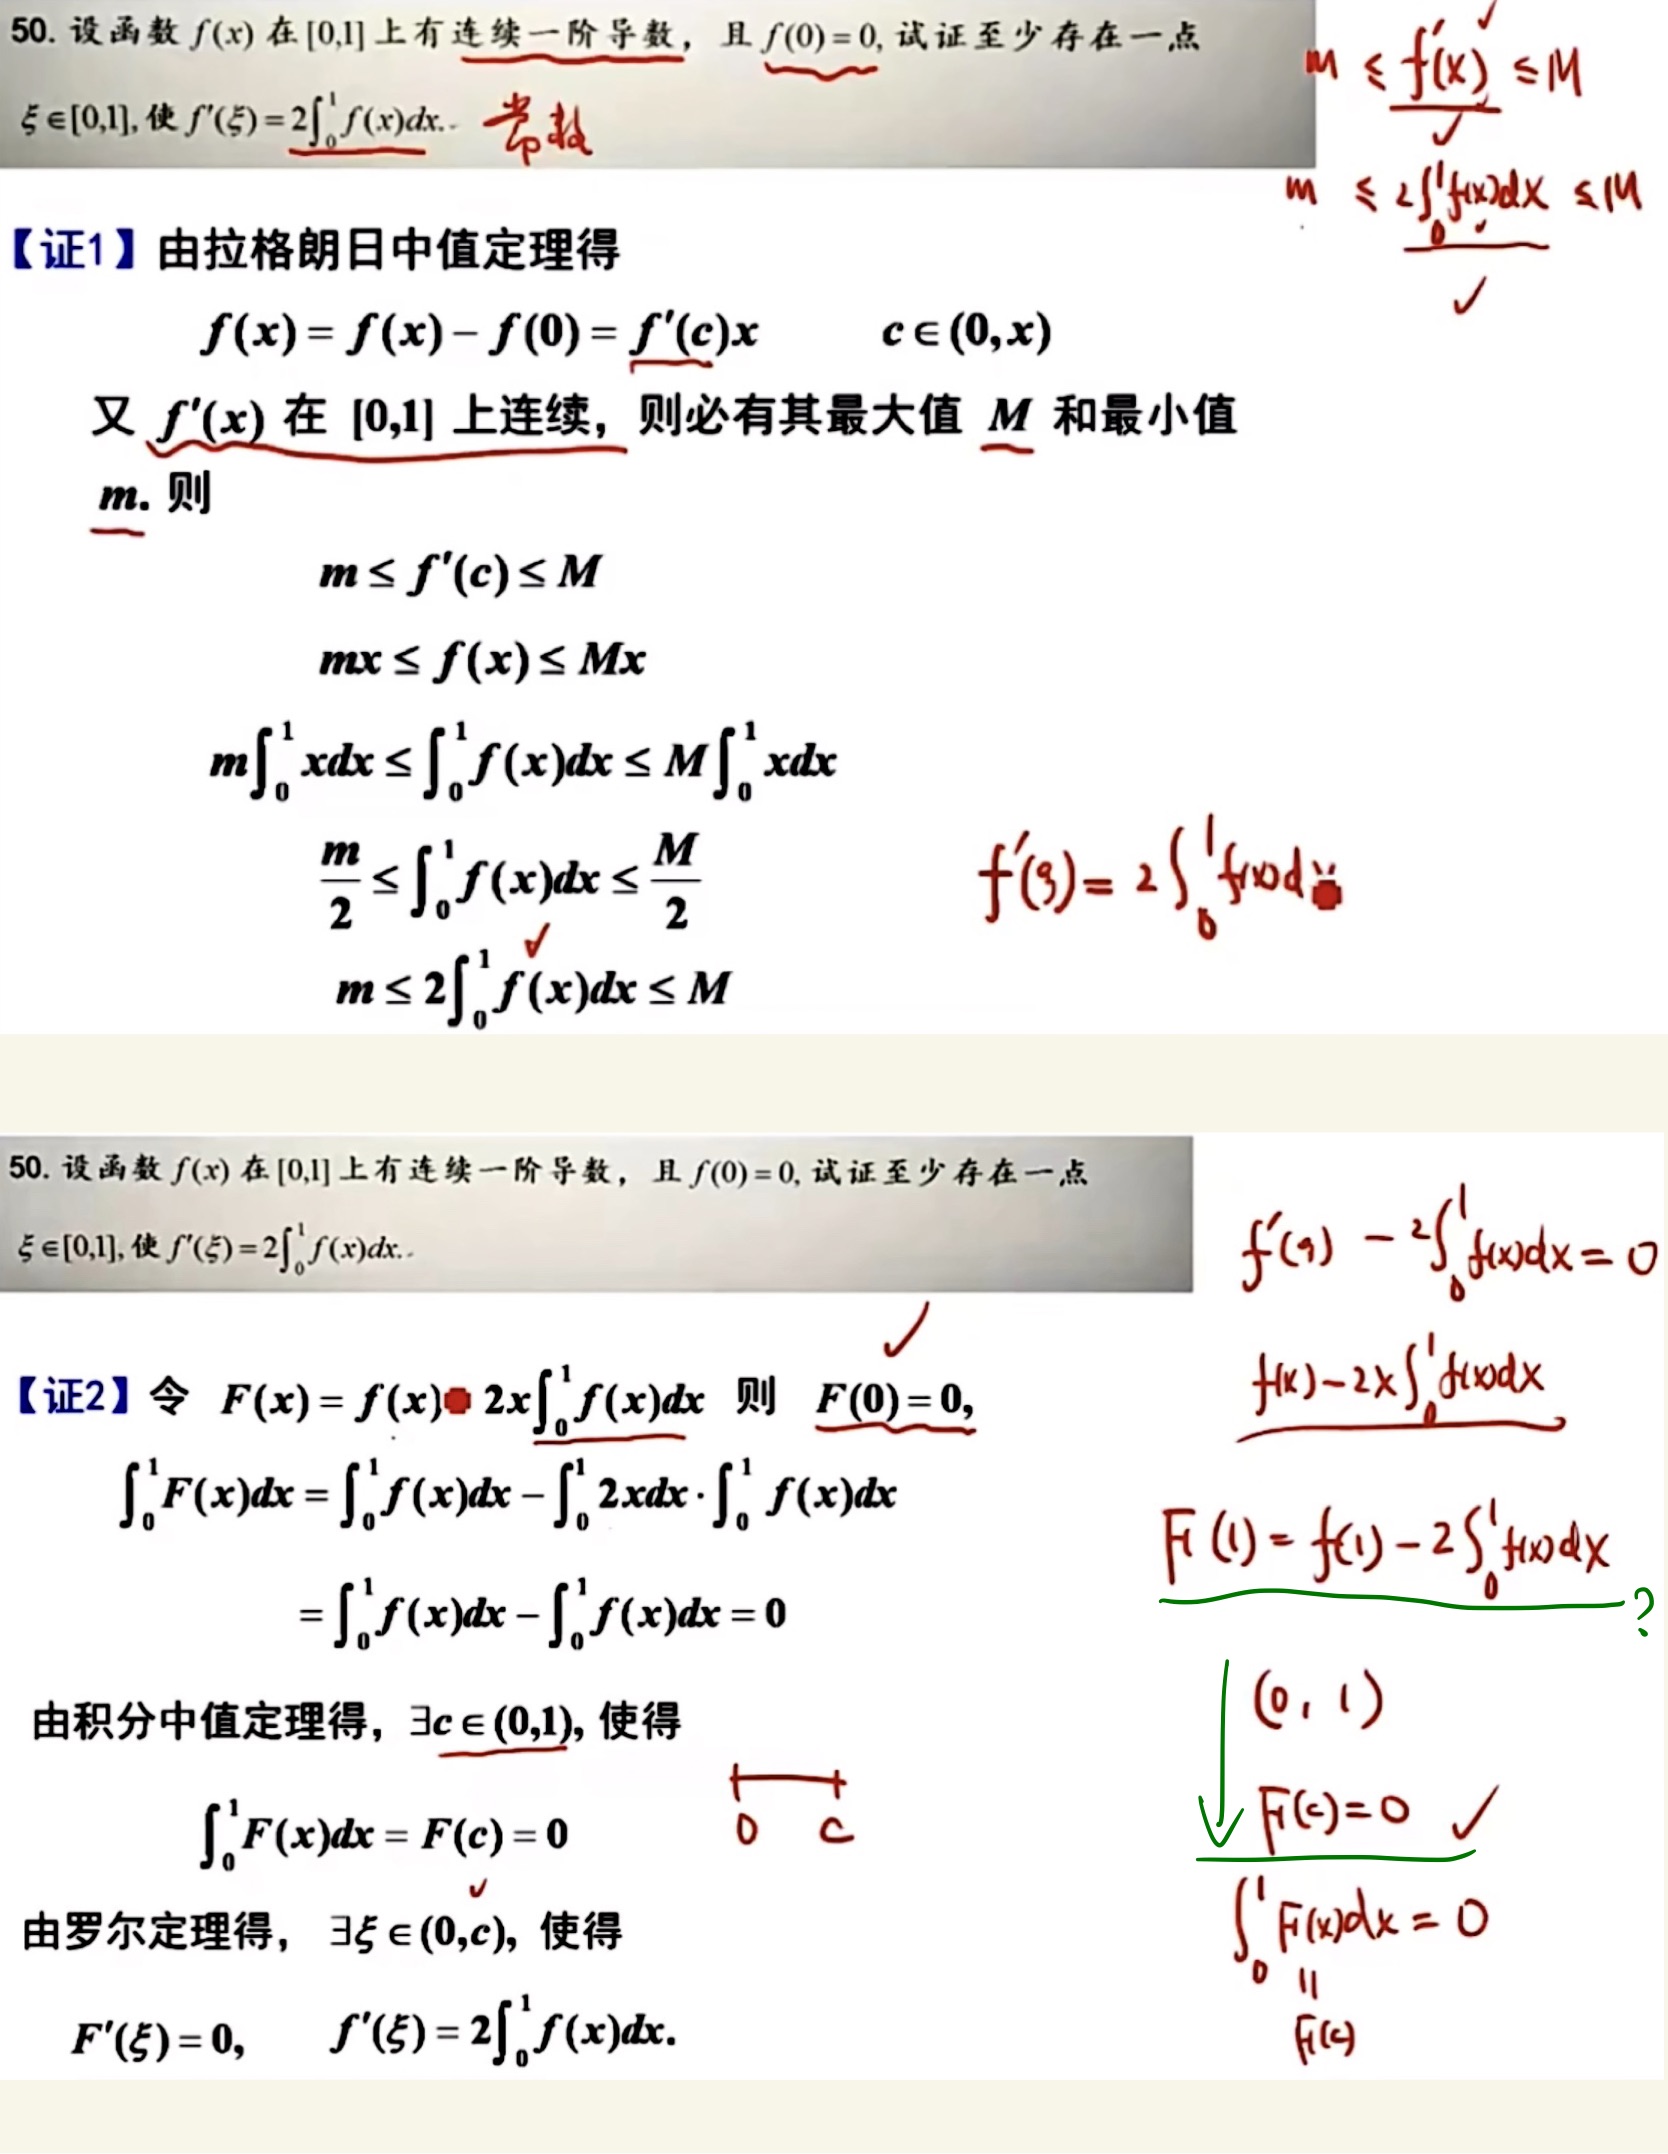 50. 设函数 f(x) 在 [0,1] 上有连续一阶导数，且 f(0) = 0, 试证至少存在一点
ξ∈[0,1], 使 f′(ξ) = 2∫₀¹ f(x)dx.
常数
m ≤ f′(x) ≤ M
m ≤ 2∫₀¹ f(x)dx ≤ M
【证1】由拉格朗日中值定理得
f(x) = f(x) − f(0) = f′(c)x c∈(0,x)
又 f′(x) 在 [0,1] 上连续，则必有其最大值 M 和最小值
m. 则
m ≤ f′(c) ≤ M
mx ≤ f(x) ≤ Mx
m∫₀¹ xdx ≤ ∫₀¹ f(x)dx ≤ M∫₀¹ xdx
m/2 ≤ ∫₀¹ f(x)dx ≤ M/2
f′(ξ) = 2∫₀¹ f(x)dx
m ≤ 2∫₀¹ f(x)dx ≤ M
50. 设函数 f(x) 在 [0,1] 上有连续一阶导数，且 f(0) = 0, 试证至少存在一点
ξ∈[0,1], 使 f′(ξ) = 2∫₀¹ f(x)dx.
f′(ξ) − 2∫₀¹ f(x)dx = 0
f(x) − 2x∫₀¹ f(x)dx
【证2】令 F(x) = f(x) 2x∫₀¹ f(x)dx 则 F(0) = 0,
∫₀¹ F(x)dx = ∫₀¹ f(x)dx − ∫₀¹ 2xdx · ∫₀¹ f(x)dx
F(1) = f(1) − 2∫₀¹ f(x)dx ?
= ∫₀¹ f(x)dx − ∫₀¹ f(x)dx = 0
(0, 1)
由积分中值定理得，∃c∈(0,1), 使得
F(c) = 0
0 c
∫₀¹ F(x)dx = F(c) = 0
∫₀¹ F(x)dx = 0
=
F(c)
由罗尔定理得，∃ξ∈(0,c), 使得
F′(ξ) = 0, f′(ξ) = 2∫₀¹ f(x)dx.